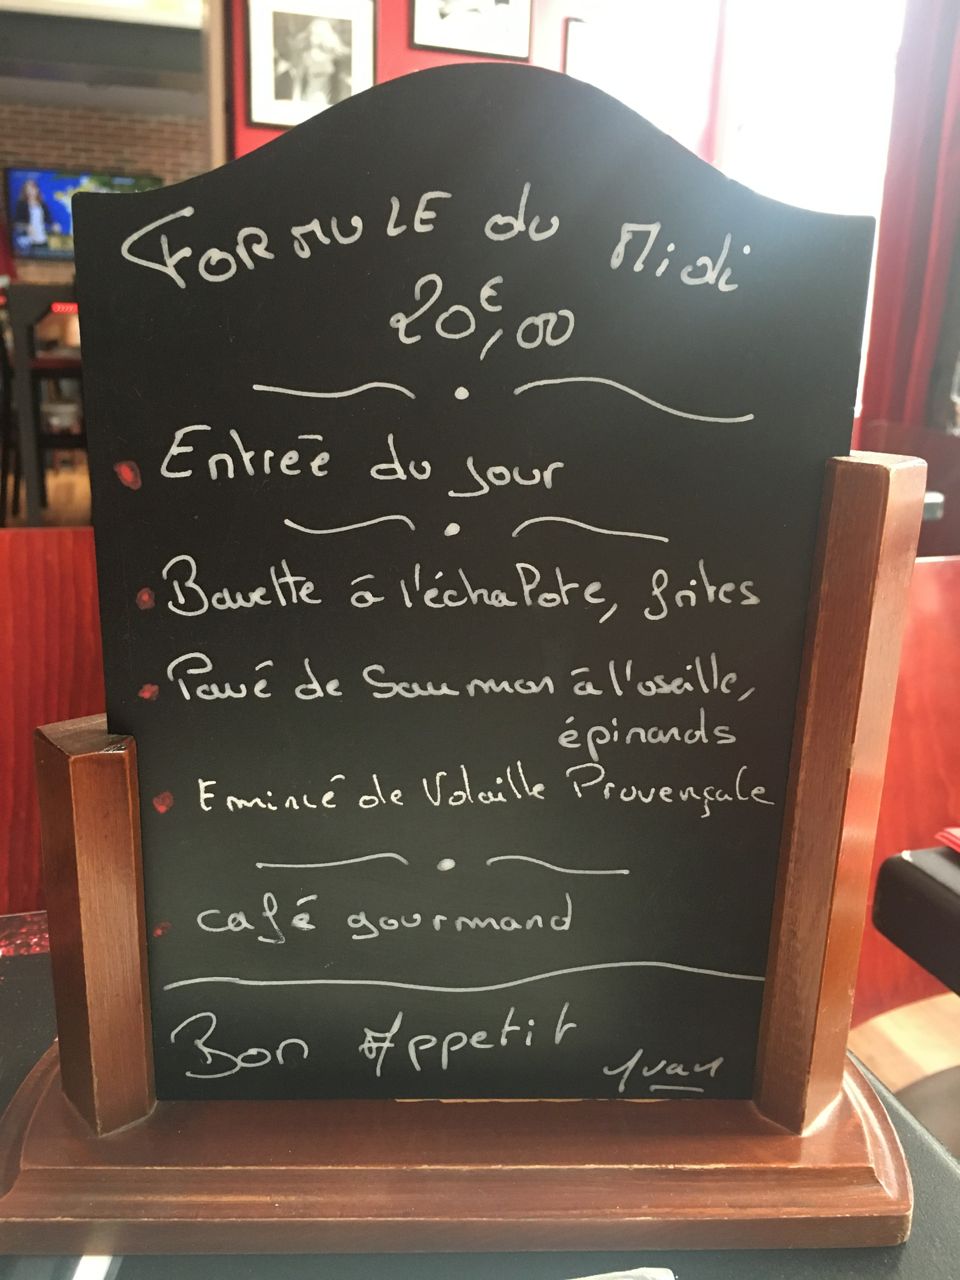 FORMULE du Midi
20€,00
Entrée du jour
Bavette à l'échaPote, frites
Pavé de Saumon à l'oseille,
épinards
Emincé de Volaille Provençale
café gourmand
Bon Appetit
Yvan